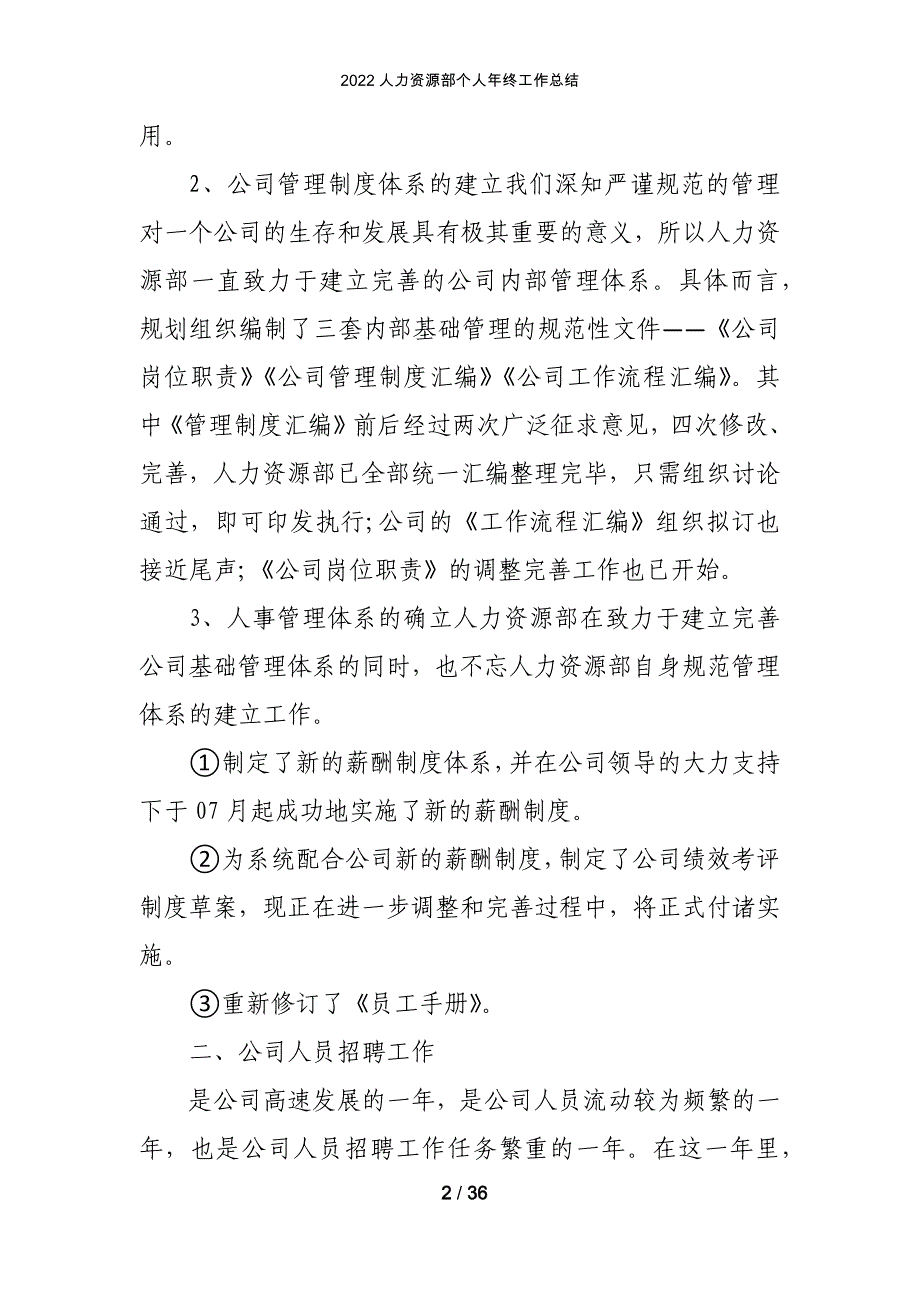 2022 人力资源部个人年终工作总结
用。
2、公司管理制度体系的建立我们深知严谨规范的管理
对一个公司的生存和发展具有极其重要的意义，所以人力资
源部一直致力于建立完善的公司内部管理体系。具体而言，
规划组织编制了三套内部基础管理的规范性文件——《公司
岗位职责》《公司管理制度汇编》《公司工作流程汇编》。其
中《管理制度汇编》前后经过两次广泛征求意见，四次修改、
完善，人力资源部已全部统一汇编整理完毕，只需组织讨论
通过，即可印发执行;公司的《工作流程汇编》组织拟订也
接近尾声;《公司岗位职责》的调整完善工作也已开始。
3、人事管理体系的确立人力资源部在致力于建立完善
公司基础管理体系的同时，也不忘人力资源部自身规范管理
体系的建立工作。
①制定了新的薪酬制度体系，并在公司领导的大力支持
下于 07 月起成功地实施了新的薪酬制度。
②为系统配合公司新的薪酬制度，制定了公司绩效考评
制度草案，现正在进一步调整和完善过程中，将正式付诸实
施。
③重新修订了《员工手册》。
二、公司人员招聘工作
是公司高速发展的一年，是公司人员流动较为频繁的一
年，也是公司人员招聘工作任务繁重的一年。在这一年里，
2 / 36